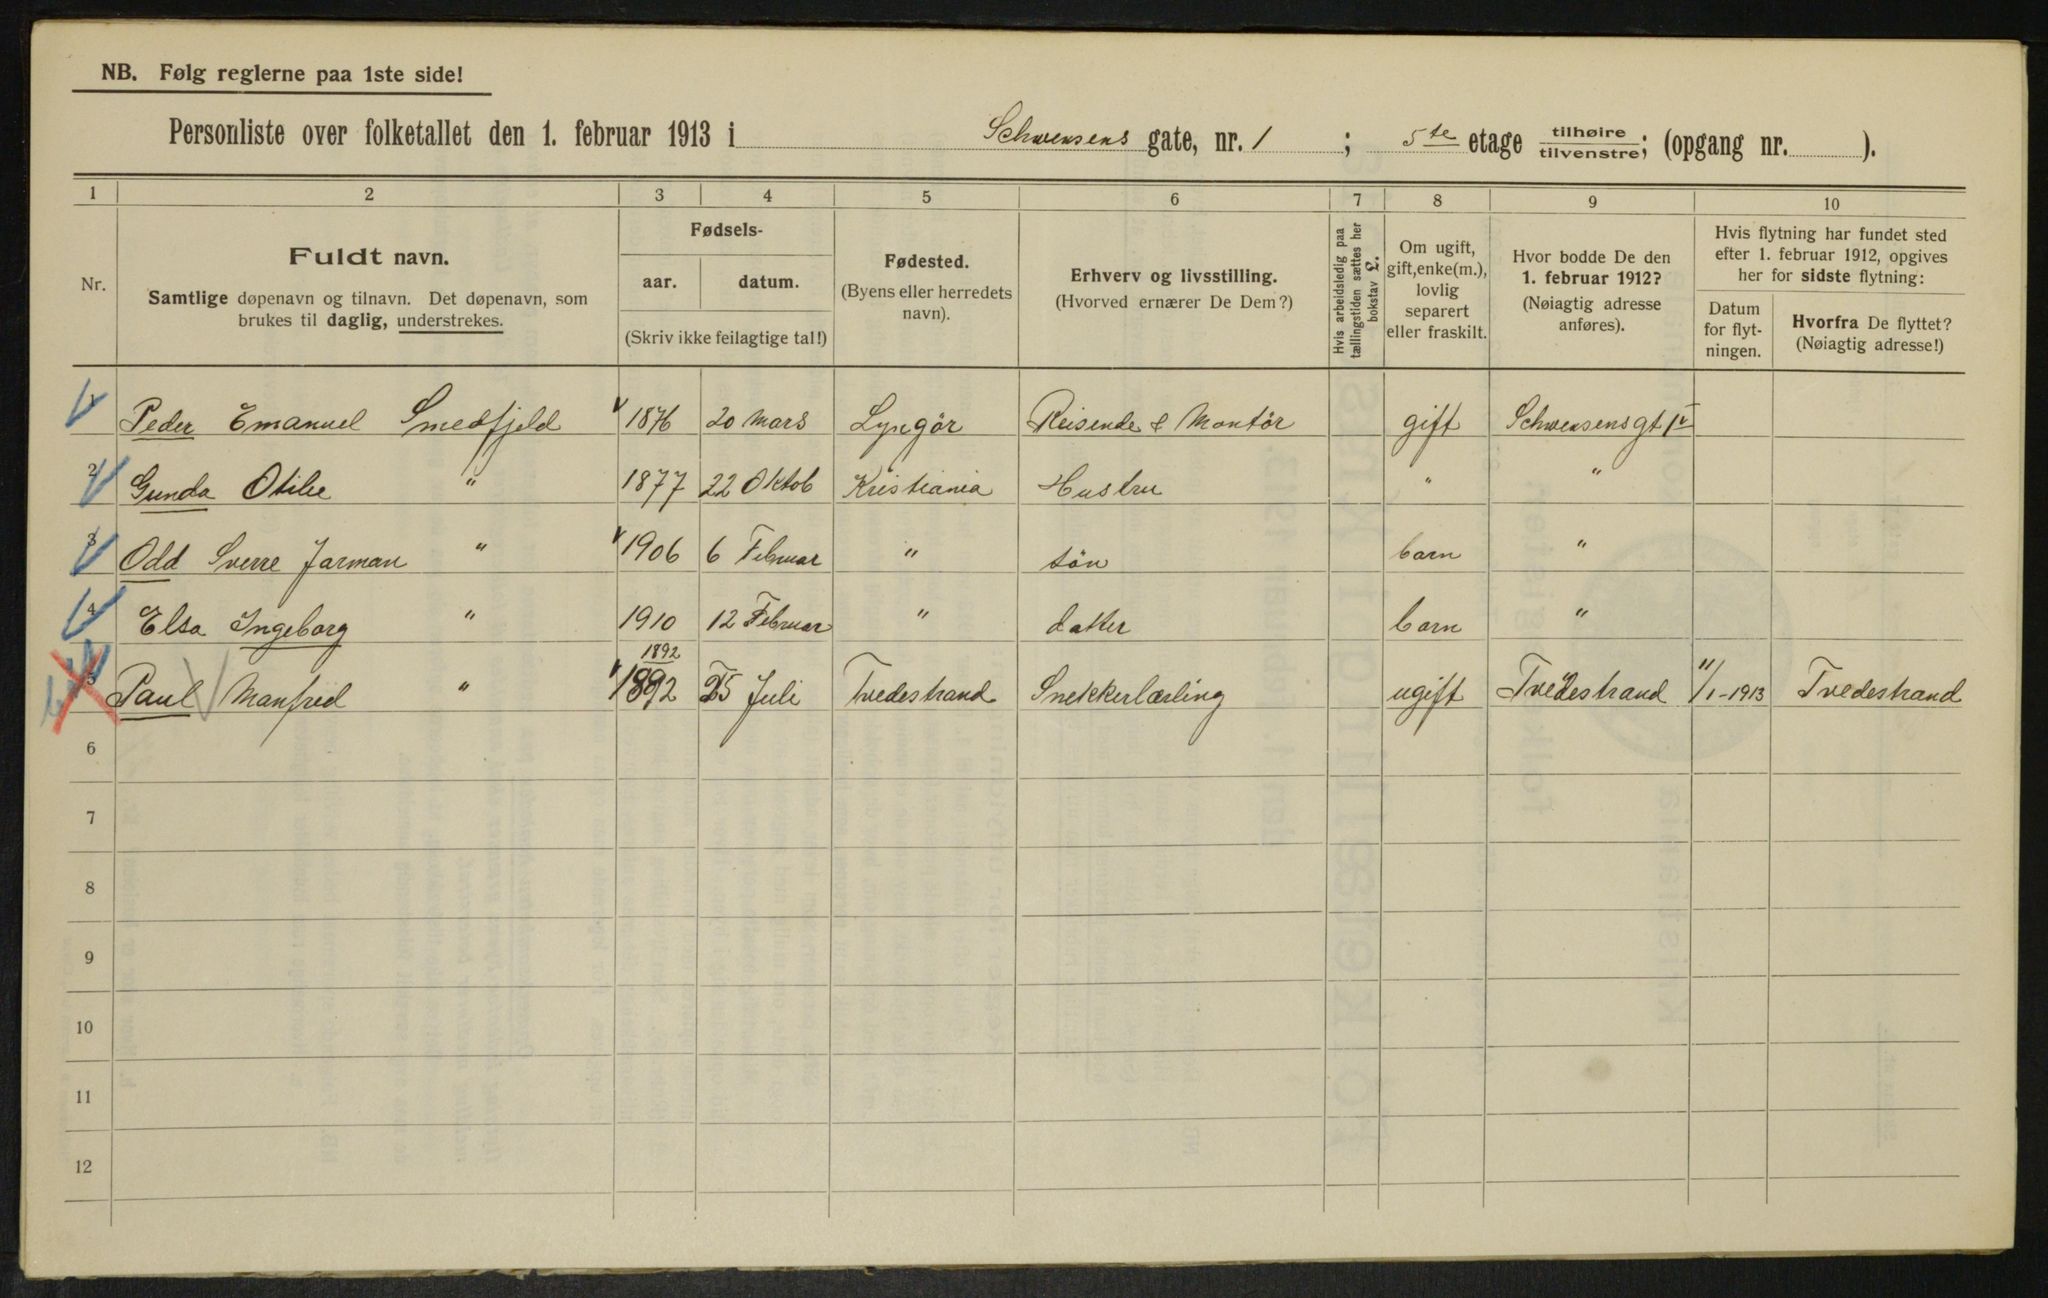 NB. Følg reglerne paa 1ste side!
Personliste over folketallet den 1. februar 1913 i Schwensens gate, nr. 1 ; 5te etage tilhøire/tilvenstre; (opgang nr. ).
1 2 3 4 5 6 7 8 9 10
Nr.
Fuldt navn.
Samtlige døpenavn og tilnavn. Det døpenavn, som
brukes til daglig, understrekes.
Fødsels-
aar. datum.
(Skriv ikke feilagtige tal!)
Fødested.
(Byens eller herredets
navn).
Erhverv og livsstilling.
(Hvorved ernærer De Dem?)
Hvis arbeidsledig paa
tællingstiden sættes her
bokstav L.
Om ugift,
gift, enke(m.),
lovlig
separert
eller fraskilt.
Hvor bodde De den
1. februar 1912?
(Nøiagtig adresse
anføres).
Hvis flytning har fundet sted
efter 1. februar 1912, opgives
her for sidste flytning:
Datum
for flyt-
ningen.
Hvorfra De flyttet?
(Nøiagtig adresse!)
1 Peder Emanuel Smedfjeld 1876 20 Mars Lyngör Reisende & Montör gift Schwensensgt 1 V
2 Gunda Otilie " 1877 22 Oktob Kristiania Hustru " "
3 Odd Sverre Jarman " 1906 6 Februar " sön barn "
4 Elsa Ingeborg " 1910 12 Februar " datter barn "
1892
5 Paul Manfred " 1892 25 Juli Tvedestrand Snekkerlærling ugift Tvedestrand 11/1-1913 Tvedestrand
6
7
8
9
10
11
12